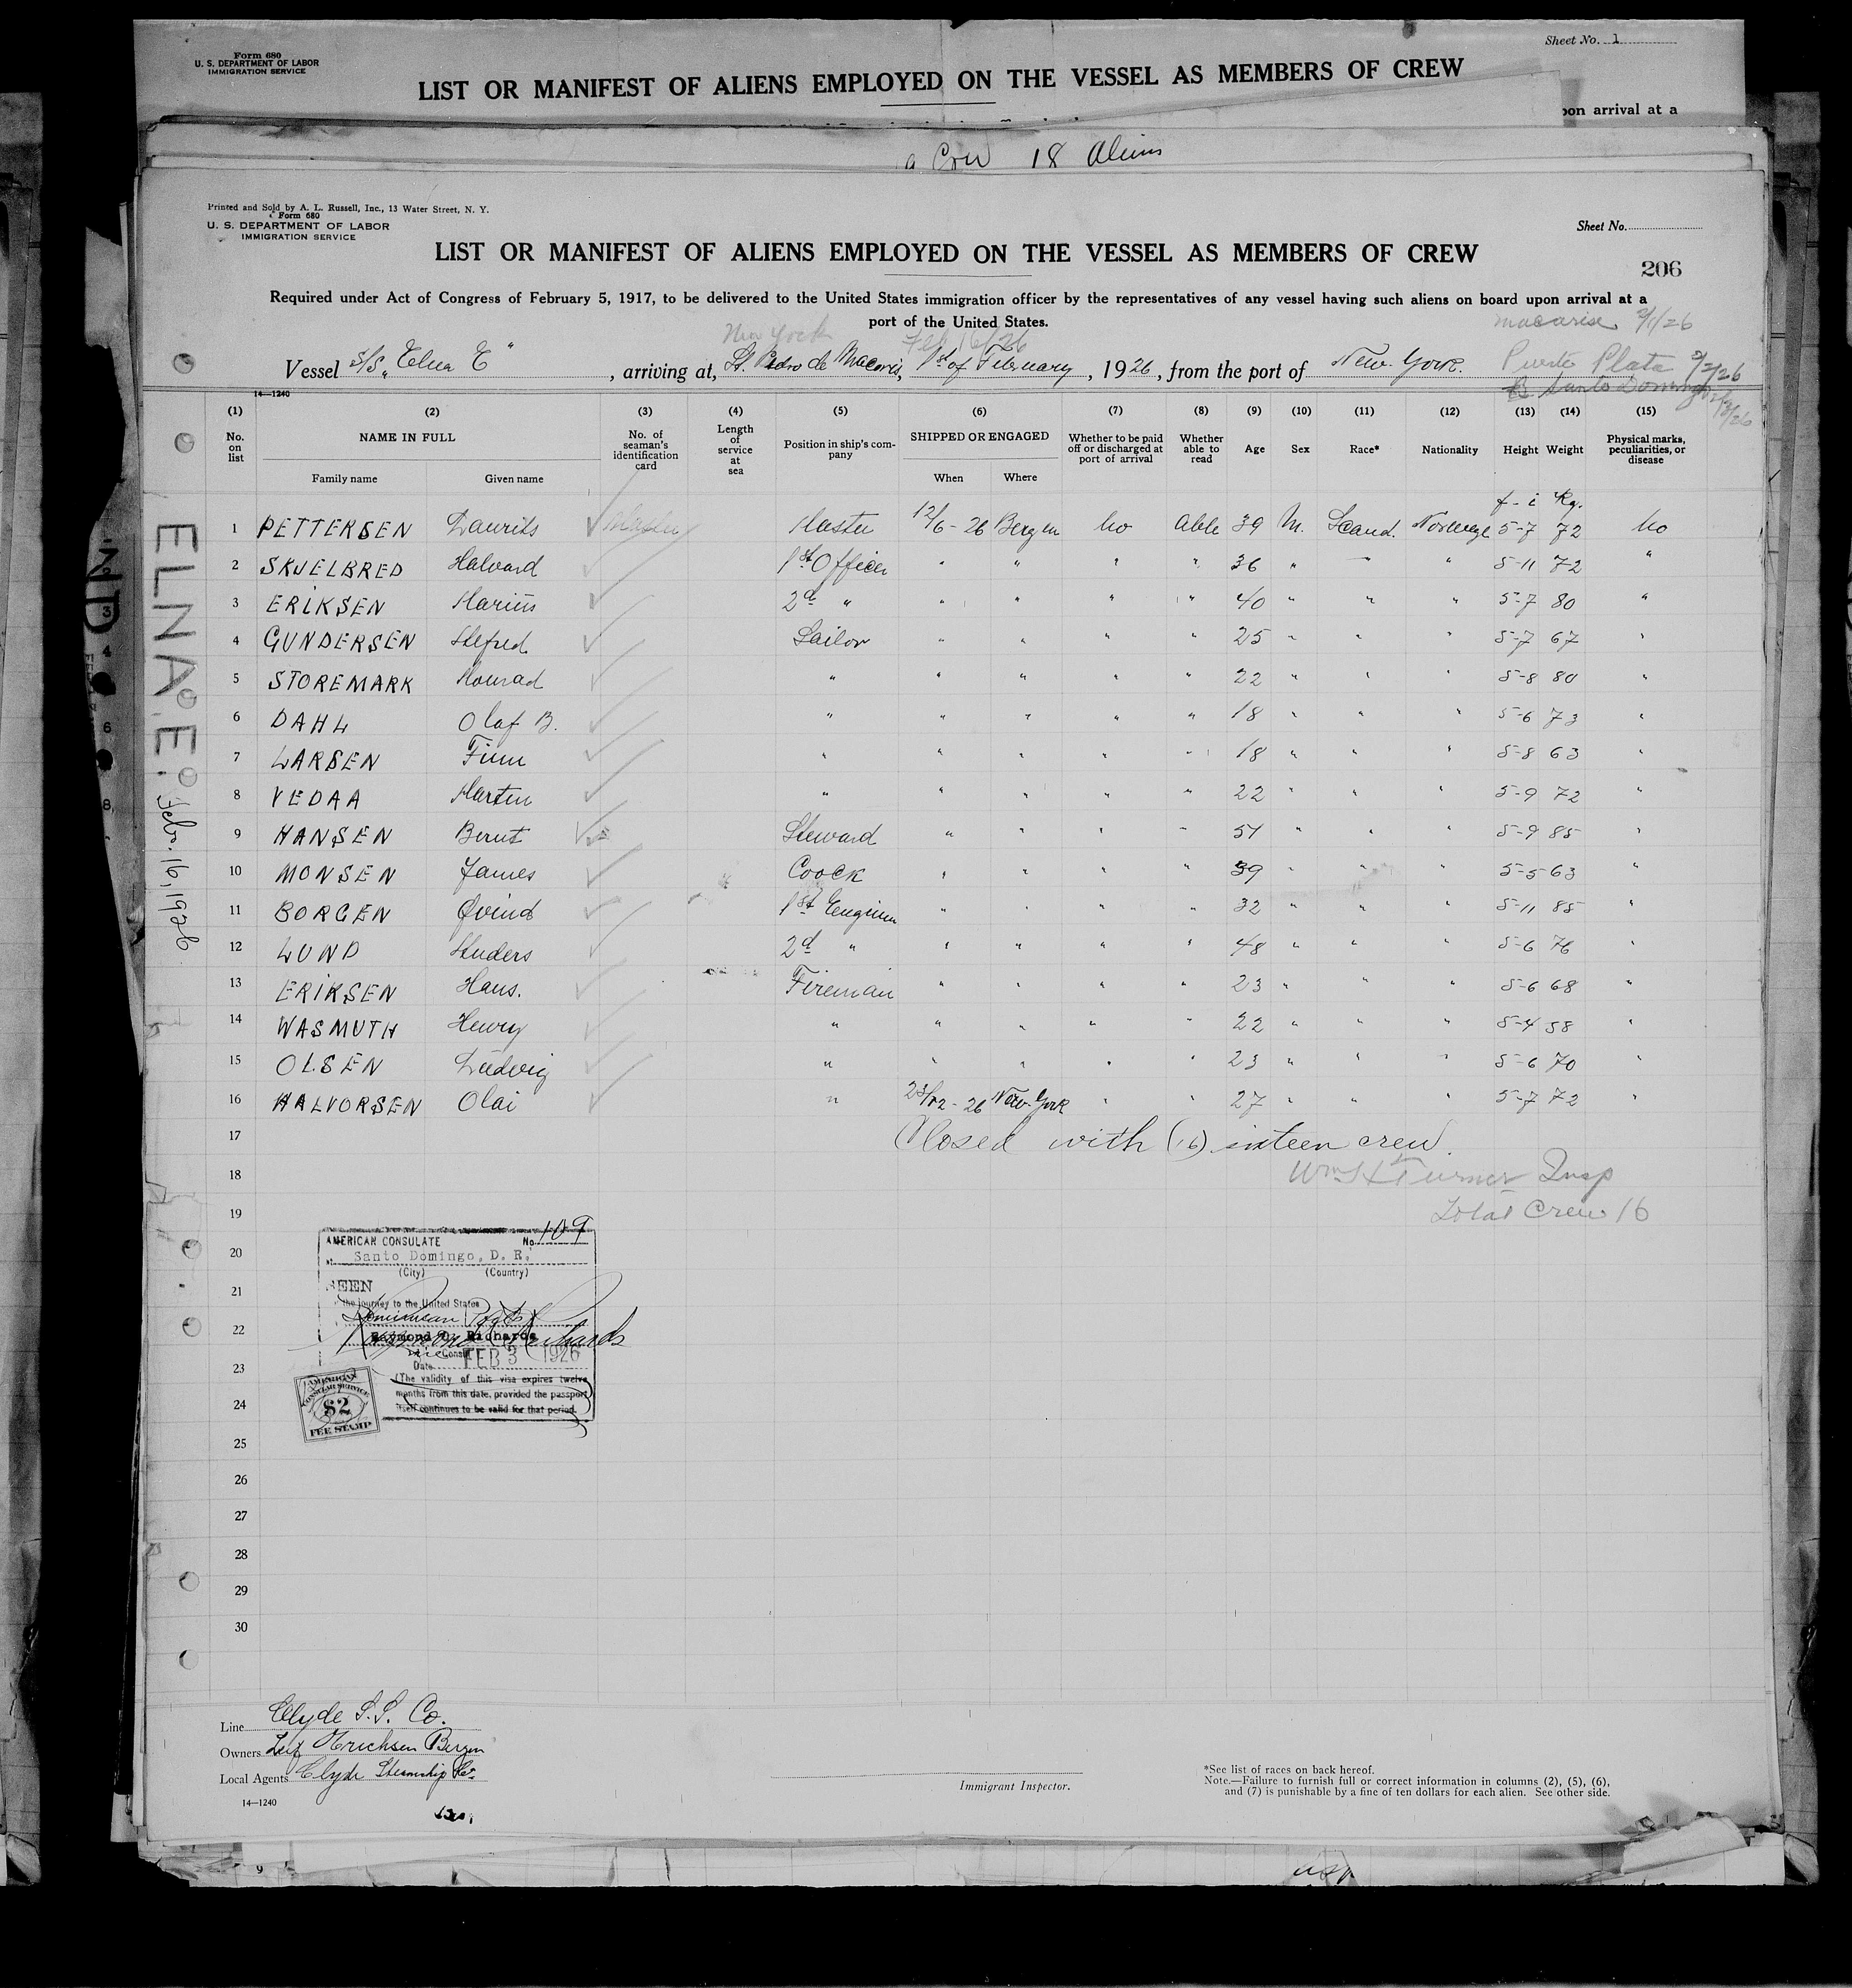 Form 680
U. S. DEPARTMENT OF LABOR
IMMIGRATION SERVICE
Sheet No. 1
LIST OR MANIFEST OF ALIENS EMPLOYED ON THE VESSEL AS MEMBERS OF CREW
pon arrival at a
a Crew 18 Aliens
Printed and Sold by A. L. Russell, Inc., 13 Water Street, N. Y.
Form 680
U. S. DEPARTMENT OF LABOR
IMMIGRATION SERVICE
Sheet No.
LIST OR MANIFEST OF ALIENS EMPLOYED ON THE VESSEL AS MEMBERS OF CREW
206
Required under Act of Congress of February 5, 1917, to be delivered to the United States immigration officer by the representatives of any vessel having such aliens on board upon arrival at a
port of the United States.
New York Feb 16/26
Macaris 2/1/26
Vessel S/S „Elna E", arriving at, St. Pedro de Macoris, 1st of February, 1926, from the port of New-York.
Puerto Plata 2/2/26
Santo Domingo 2/3/26
14—1240
(1) (2) (3) (4) (5) (6) (7) (8) (9) (10) (11) (12) (13) (14) (15)
No. on list
NAME IN FULL
Family name
Given name
No. of seaman's identification card
Length of service at sea
Position in ship's company
SHIPPED OR ENGAGED
When
Where
Whether to be paid off or discharged at port of arrival
Whether able to read
Age
Sex
Race*
Nationality
Height
Weight
Physical marks, peculiarities, or disease
f - i Kg.
1 PETTERSEN Laurits Master Master 12/6-26 Bergen No Able 39 M. Scand. Norwege 5-7 72 No
2 SKJELBRED Halvard 1st Officer " " " " 36 " " " 5-11 72 "
3 ERIKSEN Marius 2d " " " " " 40 " " " 5-7 80 "
4 GUNDERSEN Alfred Sailor " " " " 25 " " " 5-7 67 "
5 STOREMARK Konrad " " " " " 22 " " " 5-8 80 "
6 DAHL Olaf B. " " " " " 18 " " " 5-6 73 "
7 LARSEN Finn " " " " " 18 " " " 5-8 63 "
8 VEDAA Martin " " " " " 22 " " " 5-9 72 "
9 HANSEN Bernt Steward " " " " 51 " " " 5-9 85 "
10 MONSEN James Coock " " " " 39 " " " 5-5 63 "
11 BORGEN Øvind 1st Engineer " " " " 32 " " " 5-11 85 "
12 LUND Anders 2d " " " " " 48 " " " 5-6 76 "
13 ERIKSEN Hans. Fireman " " " " 23 " " " 5-6 68 "
14 WASMUTH Henry " " " " " 22 " " " 5-4 58 "
15 OLSEN Ludvig " " " " " 23 " " " 5-6 70 "
16 HALVORSEN Olai " 23/12-26 New-York " " 27 " " " 5-7 72 "
17 Closed with (16) sixteen crew.
18 Wm H Turner Insp
19 Total Crew 16
20
21
22
23
24
25
26
27
28
29
30
ELNA. E.
Febr. 16, 1926
AMERICAN CONSULATE No. 109
Santo Domingo, D. R.
(City) (Country)
SEEN
the journey to the United States
Dominican Ports
Raymond Richards
Vice Consul
Date FEB 3 1926
(The validity of this visa expires twelve
months from this date, provided the passport
itself continues to be valid for that period.
AMERICAN
CONSULAR SERVICE
$2
FEE STAMP
Line Clyde S.S. Co.
Owners Leif Erichsen Bergen
Local Agents Clyde Steamship Co.
14—1240
Immigrant Inspector.
*See list of races on back hereof.
Note.—Failure to furnish full or correct information in columns (2), (5), (6),
and (7) is punishable by a fine of ten dollars for each alien. See other side.
9